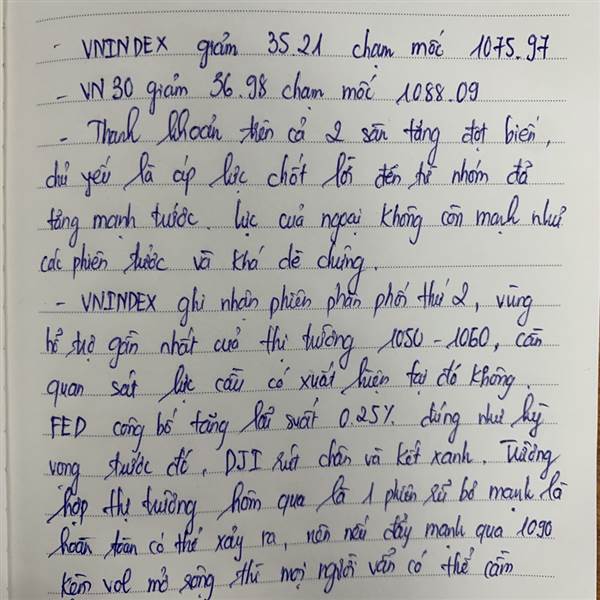 - VNINDEX giảm 35.21 chạm mốc 1075.97
- VN30 giảm 36.98 chạm mốc 1088.09
- Thanh khoản trên cả 2 sàn tăng đột biến,
chủ yếu là áp lực chốt lời đến từ nhóm đã
tăng mạnh trước. Lực cuả ngoại không còn mạnh như
các phiên trước và khá dè chừng.
- VNINDEX ghi nhận phiên phân phối thứ 2, vùng
hỗ trợ gần nhất cuả thị trường 1050 - 1060, cần
quan sát lực cầu có xuất hiện tại đó không.
FED công bố tăng lãi suất 0.25% đúng như kỳ
vọng trước đó, DJI rút chân và kết xanh. Trường
hợp thị trường hôm qua là 1 phiên rũ bỏ mạnh là
hoàn toàn có thể xảy ra, nên nếu đẩy mạnh qua 1090
kèm vol mở sóng thì mọi người vẫn có thể cầm